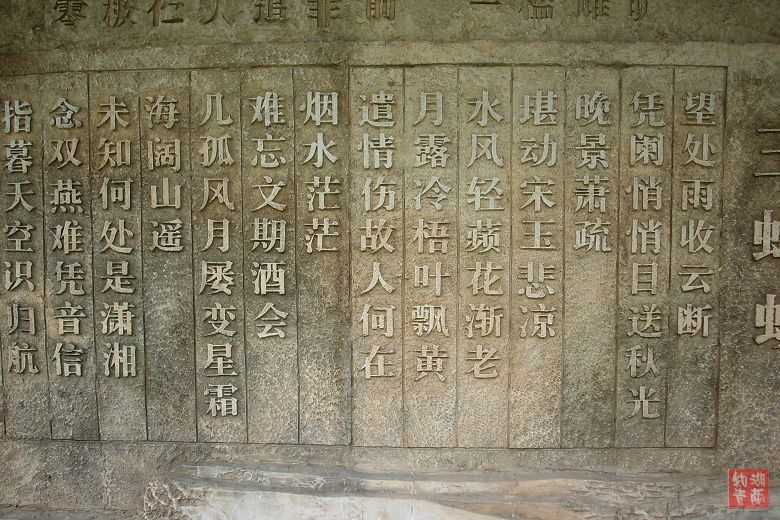 望处雨收云断
凭阑悄悄目送秋光
晚景萧疏
堪动宋玉悲凉
水风轻蘋花渐老
月露冷梧叶飘黄
遣情伤故人何在
烟水茫茫
难忘文期酒会
几孤风月屡变星霜
海阔山遥
未知何处是潇湘
念双燕难凭音信
指暮天空识归航